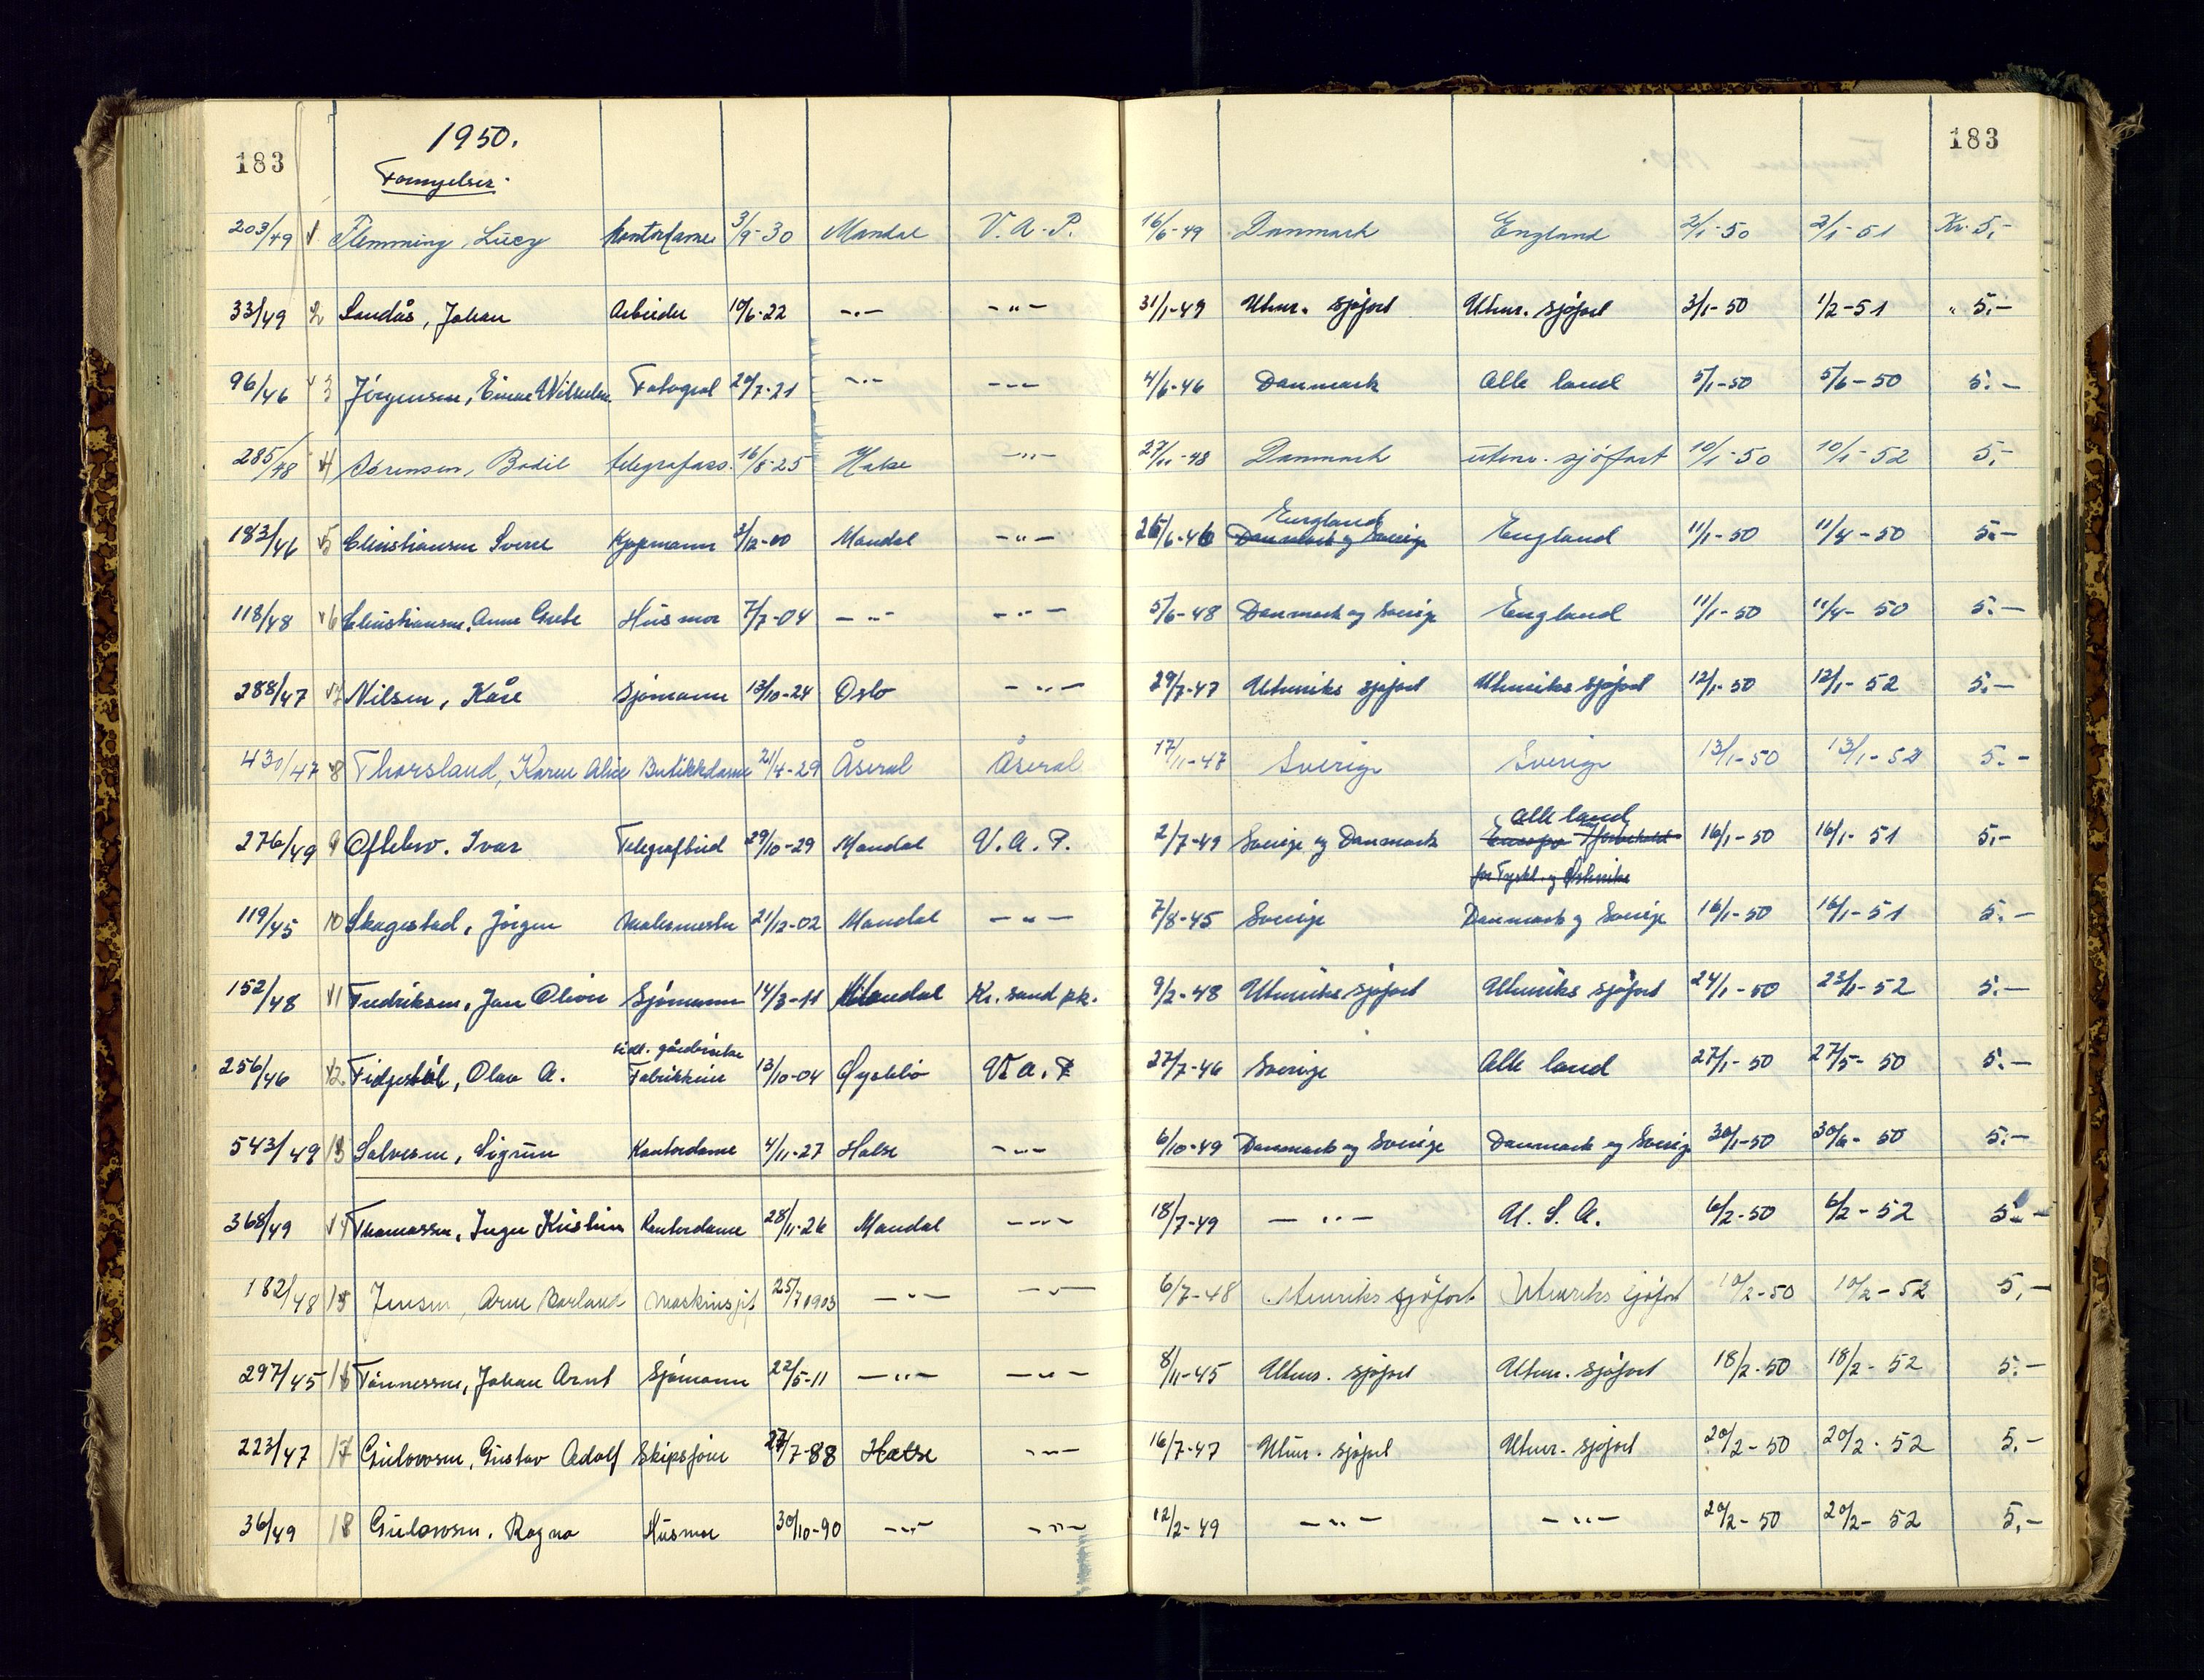 183
1950.
Fornyelser.
183
203/49 1 Flemming, Lucy kontordame 3/9-30 Mandal V. A. P. 16/6-49 Danmark England 2/1-50 2/1-51 Kr. 5,-
33/49 2 Sandås, Johan Arbeider 10/6-22 -"- -"- 31/1-49 Utenr. sjøfart Utenr. sjøfart 3/1-50 1/2-51 " 5,-
96/46 3 Jörgensen, Einar Wilhelm Fotograf 20/7-21 -"- -"- 4/6-46 Danmark Alle land 5/1-50 5/6-50 5.-
285/48 4 Sörensen, Bodil telegrafass. 16/8-25 Halse -"- 27/11-48 Danmark utenr. sjøfart 10/1-50 10/1-52 5,-
England
183/46 5 Christiansen Sverre Kjøpmann 3/12-00 Mandal -"- 26/6-46 Danmark og Sverige England 11/1-50 11/4-50 5.-
118/48 6 Christiansen, Anna Grete Husmor 7/7-04 -"- -"- 5/6-48 Danmark og Sverige England 11/1-50 11/4-50 5.-
288/47 7 Nilsen, Kåre Sjømann 13/10-24 Oslo -"- 29/7-47 Utenriks sjøfart Utenriks sjøfart 12/1-50 12/1-52 5.-
430/47 8 Thorsland, Karen Alice Butikkdame 21/4-29 Åseral Åseral 17/11-47 Sverige Sverige 13/1-50 13/1-52 5.-
Alle land
276/49 9 Oftebro. Ivar Telegrafbud 29/10-29 Mandal V. A. P. 2/7-49 Sverige og Danmark Europa 16/1-50 16/1-51 5,-
for Tyskl. og Østerrike
119/45 10 Skagestad, Jörgen Malermester 21/12-02 Mandal -"- 7/8-45 Sverige Danmark og Sverige 16/1-50 16/1-51 5.-
152/48 11 Fredriksen, Jan Oliver Sjømann 14/3-11 Mandal Kr. sand pk. 9/2-48 Utenriks sjøfart Utenriks sjøfart 24/1-50 23/1-52 5.-
tidl. gårdbruker
256/46 12 Fidjestøl, Olav A. Fabrikkeier 13/10-04 Øyslebö V. A. P 27/7-46 Sverige Alle land 27/1-50 27/5-50 5.-
543/49 13 Salvesen, Sigrun Kontordame 4/11-27 Halse -"- 6/10-49 Danmark og Sverige Danmark og Sverige 30/1-50 30/6-50 5.-
368/49 14 Thomassen, Inger Kristine Kontordame 28/11-26 Mandal -"- 18/7-49 -"- U. S. A. 6/2-50 6/2-52 5.-
182/48 15 Jensen, Arne Barland Maskinsjef 25/7 1903 -"- -"- 6/7-48 Utenriks sjøfart Utenriks sjøfart 10/2-50 10/2-52 5,-
297/45 16 Tönnessen, Johan Arnt Sjømann 22/5-11 -"- -"- 8/11-45 Utenr. sjøfart Utenr. sjøfart 18/2-50 18/2-52 5.-
223/47 17 Gulowsen, Gustav Adolf Skipsfører 27/7-88 Halse -"- 16/7-47 Utenr. sjøfart Utenr. sjøfart 20/2-50 20/2-52 5.-
36/49 18 Gulowsen. Ragna Husmor 30/10-90 -"- -"- 12/2-49 -"- -"- 20/2-50 20/2-52 5,-